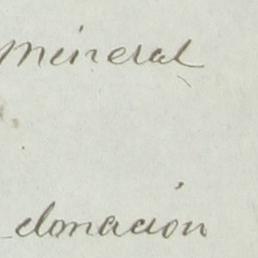 Mineral
donación